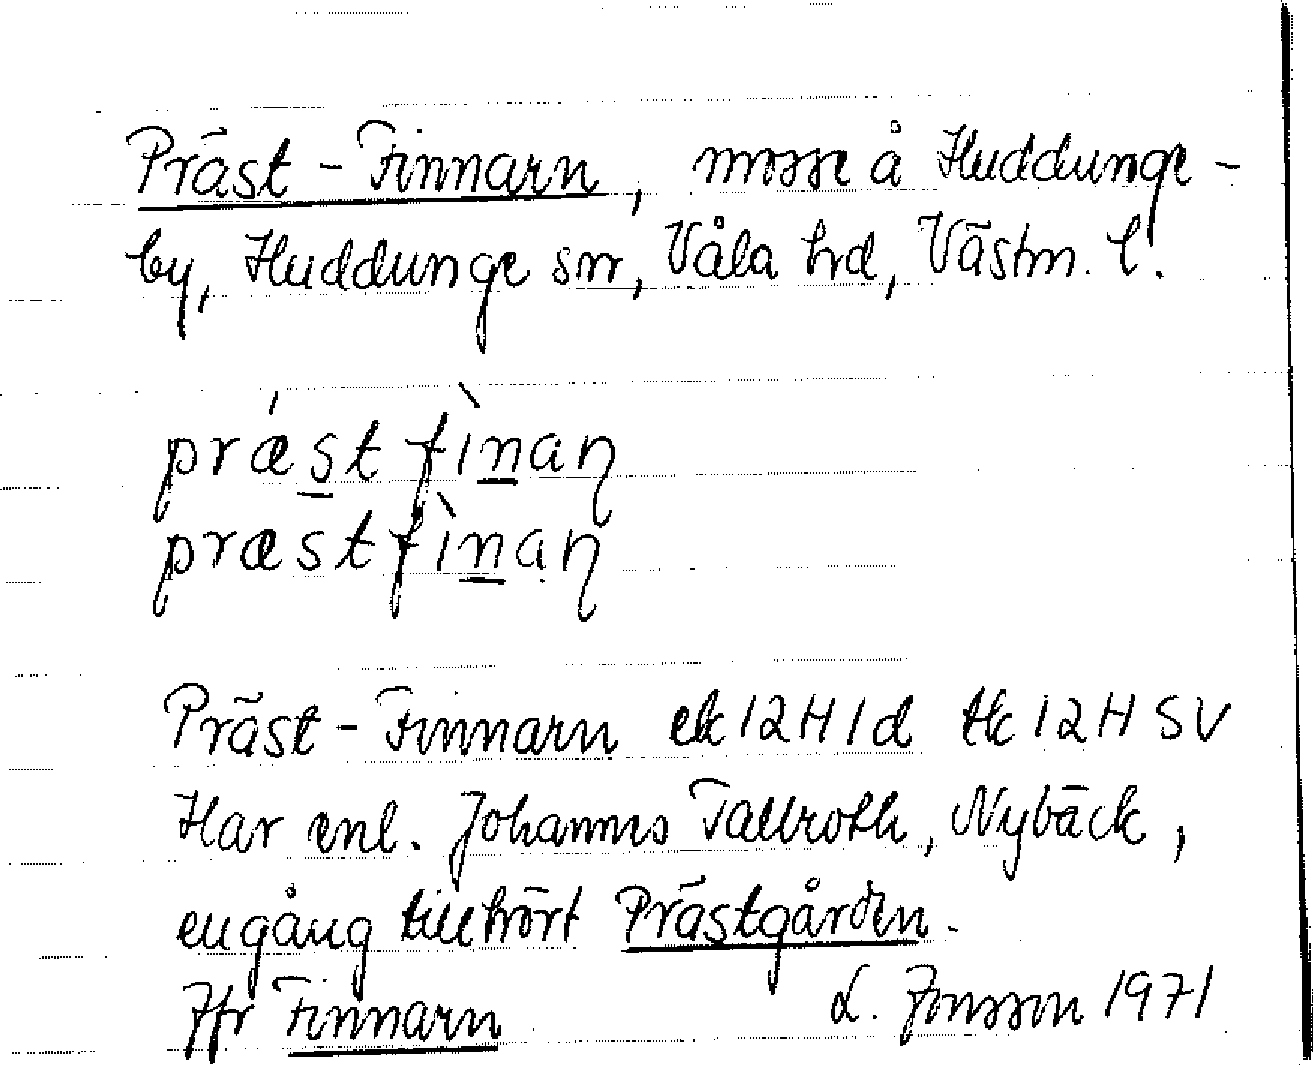 Präst-Finnarn, mosse å Huddunge-
by, Huddunge sn, Våla hd, Västm. l.
prǽst fìnaɳ
præst fìnaɳ
Präst-Finnarn ek 12H1d tk 12H SV
Har enl. Johannes Tallroth, Nybäck,
engång tillhört Prästgården.
Jfr Finnarn L. Jonsson 1971